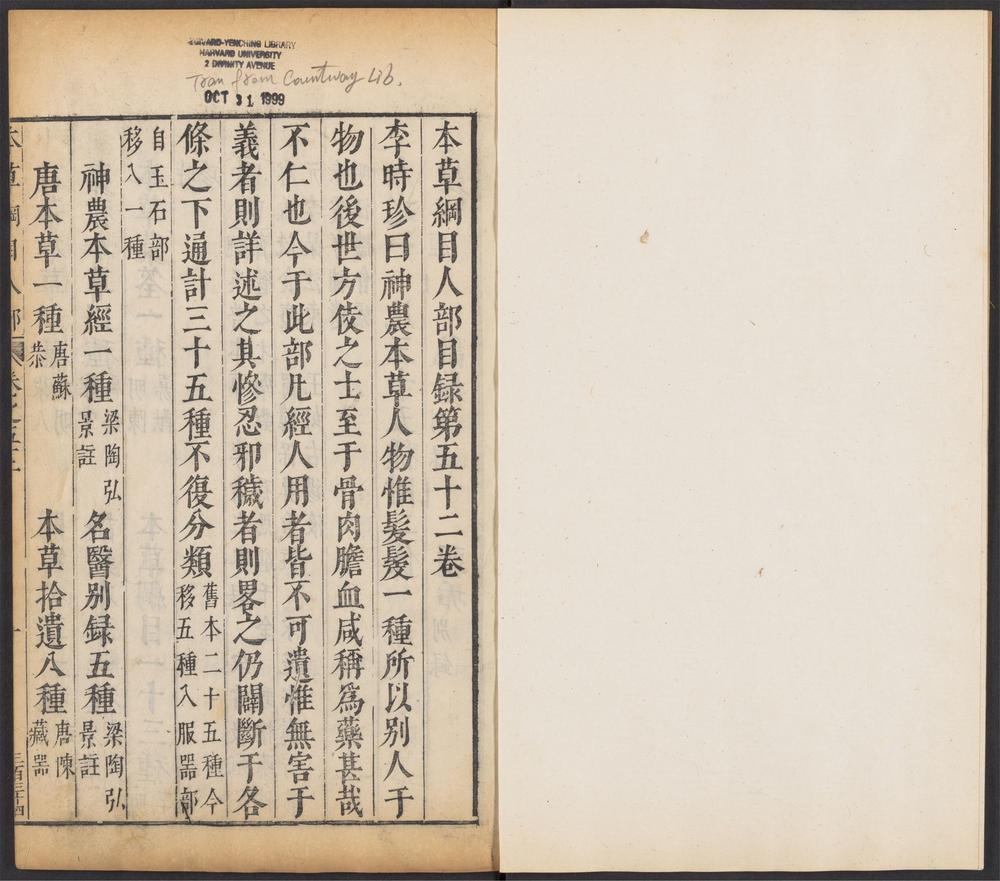 HARVARD-YENCHING LIBRARY
HARVARD UNIVERSITY
2 DIVINITY AVENUE
Tran from Countway Lib.
OCT 31 1999
本草綱目人部目録第五十二卷
李時珍曰神農本草人物惟髮髲一種所以别人于
物也後世方伎之士至于骨肉膽血咸稱爲藥甚哉
不仁也今于此部凡經人用者皆不可遺惟無害于
義者則詳述之其慘忍邪穢者則畧之仍闢斷于各
條之下通計三十五種不復分類舊本二十五種今
移五種入服器部
自玉石部
移入一種
神農本草經一種梁陶弘
景註
名醫别録五種梁陶弘
景註
唐本草一種唐蘇
恭
本草拾遺八種唐陳
藏器
本草綱目人部
卷之五十二
一
三百三十四